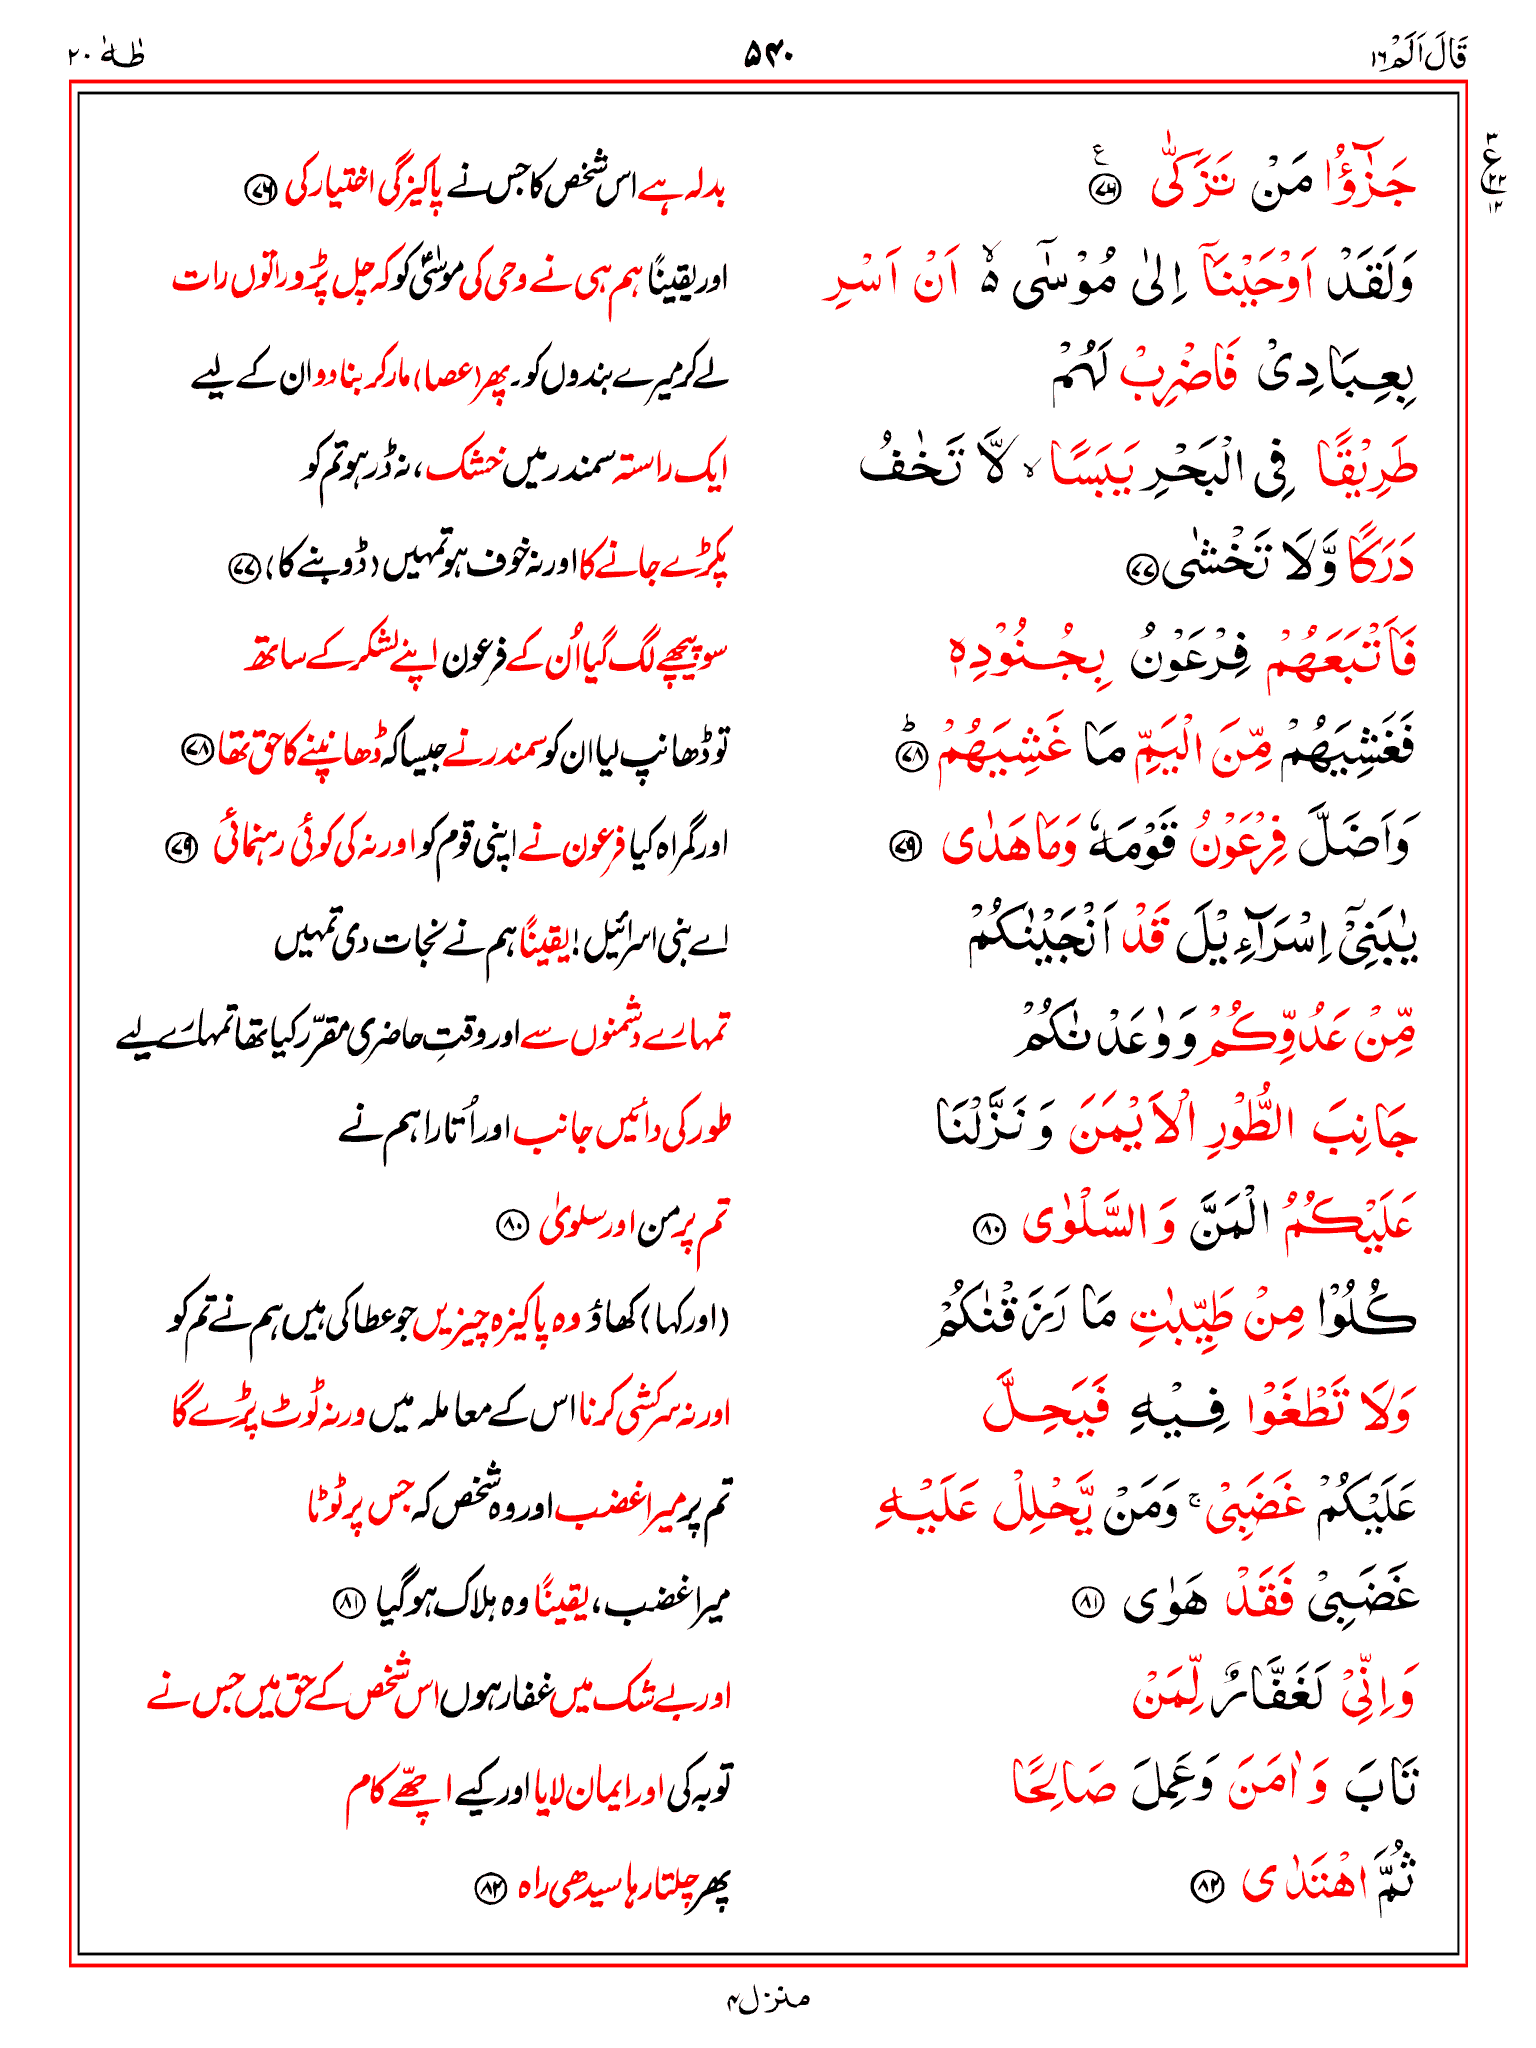 قَالَ اَلَمْ ١٦
۵۴۰
طٰهٰ ۲۰
۳
ع
۲۲
۱۳
جَزٰٓؤُا مَنْ تَزَكّٰى ﴿۷۶﴾ ع
بدلہ ہے اس شخص کا جس نے پاکیزگی اختیار کی ﴿۷۶﴾
وَلَقَدْ اَوْحَيْنَاۤ اِلٰى مُوْسٰۤى ۙ۬ اَنْ اَسْرِ
اور یقیناً ہم ہی نے وحی کی موسیٰؑ کو کہ چل پڑو راتوں رات
بِعِبَادِىْ فَاضْرِبْ لَهُمْ
لے کر میرے بندوں کو۔ پھر (عصا) مار کر بنا دو ان کے لیے
طَرِيْقًا فِى الْبَحْرِ يَبَسًا ۙ لَّا تَخٰفُ
ایک راستہ سمندر میں خشک ، نہ ڈر ہو تم کو
دَرَكًا وَّلَا تَخْشٰى ﴿۷۷﴾
پکڑے جانے کا اور نہ خوف ہو تمہیں (ڈوبنے کا) ﴿۷۷﴾
فَاَتْبَعَهُمْ فِرْعَوْنُ بِجُنُوْدِهٖ
سو پیچھے لگ گیا اُن کے فرعون اپنے لشکر کے ساتھ
فَغَشِيَهُمْ مِّنَ الْيَمِّ مَا غَشِيَهُمْ ﴿۷۸﴾ؕ
تو ڈھانپ لیا ان کو سمندر نے جیسا کہ ڈھانپنے کا حق تھا ﴿۷۸﴾
وَاَضَلَّ فِرْعَوْنُ قَوْمَهٗ وَمَا هَدٰى ﴿۷۹﴾
اور گمراہ کیا فرعون نے اپنی قوم کو اور نہ کی کوئی رہنمائی ﴿۷۹﴾
يٰبَنِىْۤ اِسْرَآءِيْلَ قَدْ اَنْجَيْنٰكُمْ
اے بنی اسرائیل! یقیناً ہم نے نجات دی تمہیں
مِّنْ عَدُوِّكُمْ وَوٰعَدْنٰكُمْ
تمہارے دشمنوں سے اور وقتِ حاضری مقرّر کیا تھا تمہارے لیے
جَانِبَ الطُّوْرِ الْاَيْمَنَ وَنَزَّلْنَا
طور کی دائیں جانب اور اُتارا ہم نے
عَلَيْكُمُ الْمَنَّ وَالسَّلْوٰى ﴿۸۰﴾
تم پر من اور سلویٰ ﴿۸۰﴾
كُلُوْا مِنْ طَيِّبٰتِ مَا رَزَقْنٰكُمْ
(اور کہا) کھاؤ وہ پاکیزہ چیزیں جو عطا کی ہیں ہم نے تم کو
وَلَا تَطْغَوْا فِيْهِ فَيَحِلَّ
اور نہ سرکشی کرنا اس کے معاملہ میں ورنہ ٹوٹ پڑے گا
عَلَيْكُمْ غَضَبِىْ ۚ وَمَنْ يَّحْلِلْ عَلَيْهِ
تم پر میرا غضب اور وہ شخص کہ جس پر ٹوٹا
غَضَبِىْ فَقَدْ هَوٰى ﴿۸۱﴾
میرا غضب، یقیناً وہ ہلاک ہو گیا ﴿۸۱﴾
وَاِنِّىْ لَغَفَّارٌ لِّمَنْ
اور بے شک میں غفار ہوں اس شخص کے حق میں جس نے
تَابَ وَاٰمَنَ وَعَمِلَ صَالِحًا
توبہ کی اور ایمان لایا اور کیے اچھّے کام
ثُمَّ اهْتَدٰى ﴿۸۲﴾
پھر چلتا رہا سیدھی راہ ﴿۸۲﴾
منزل ۴